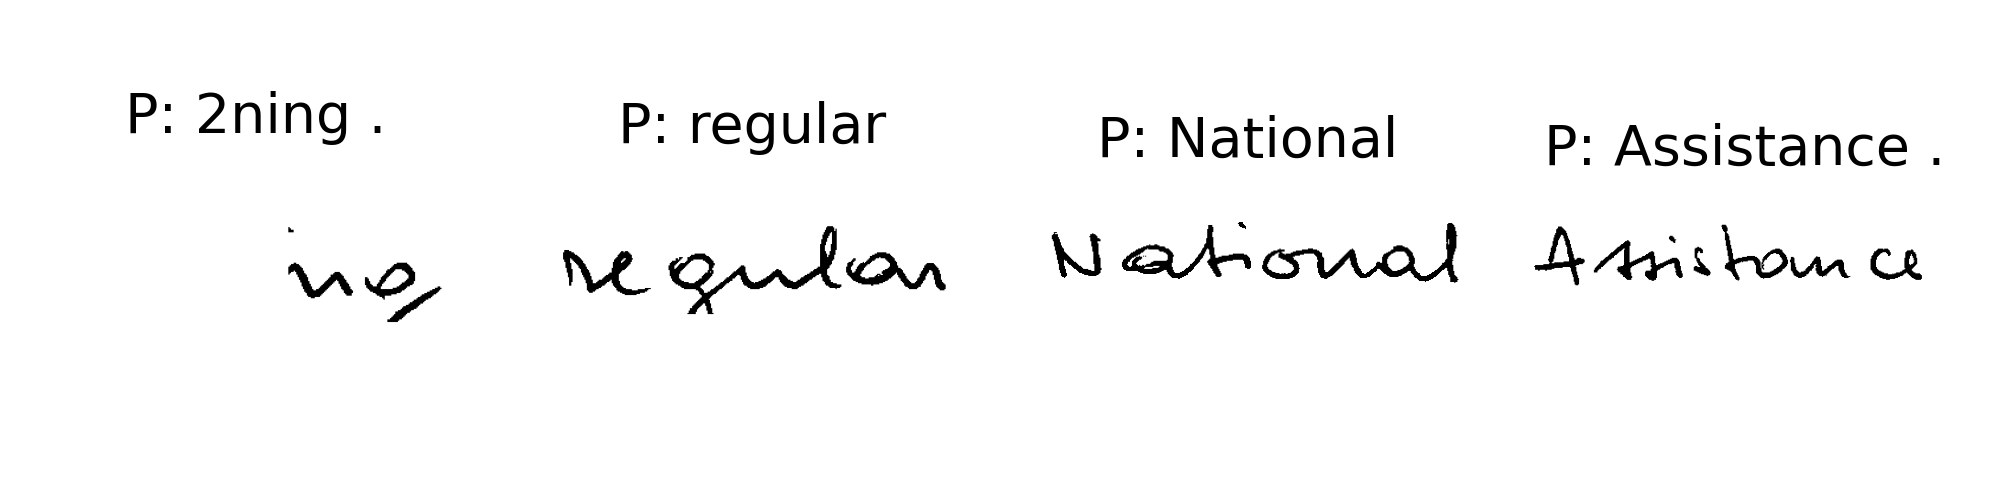 P: 2ning . P: regular P: National P: Assistance .
ing regular National Assistance